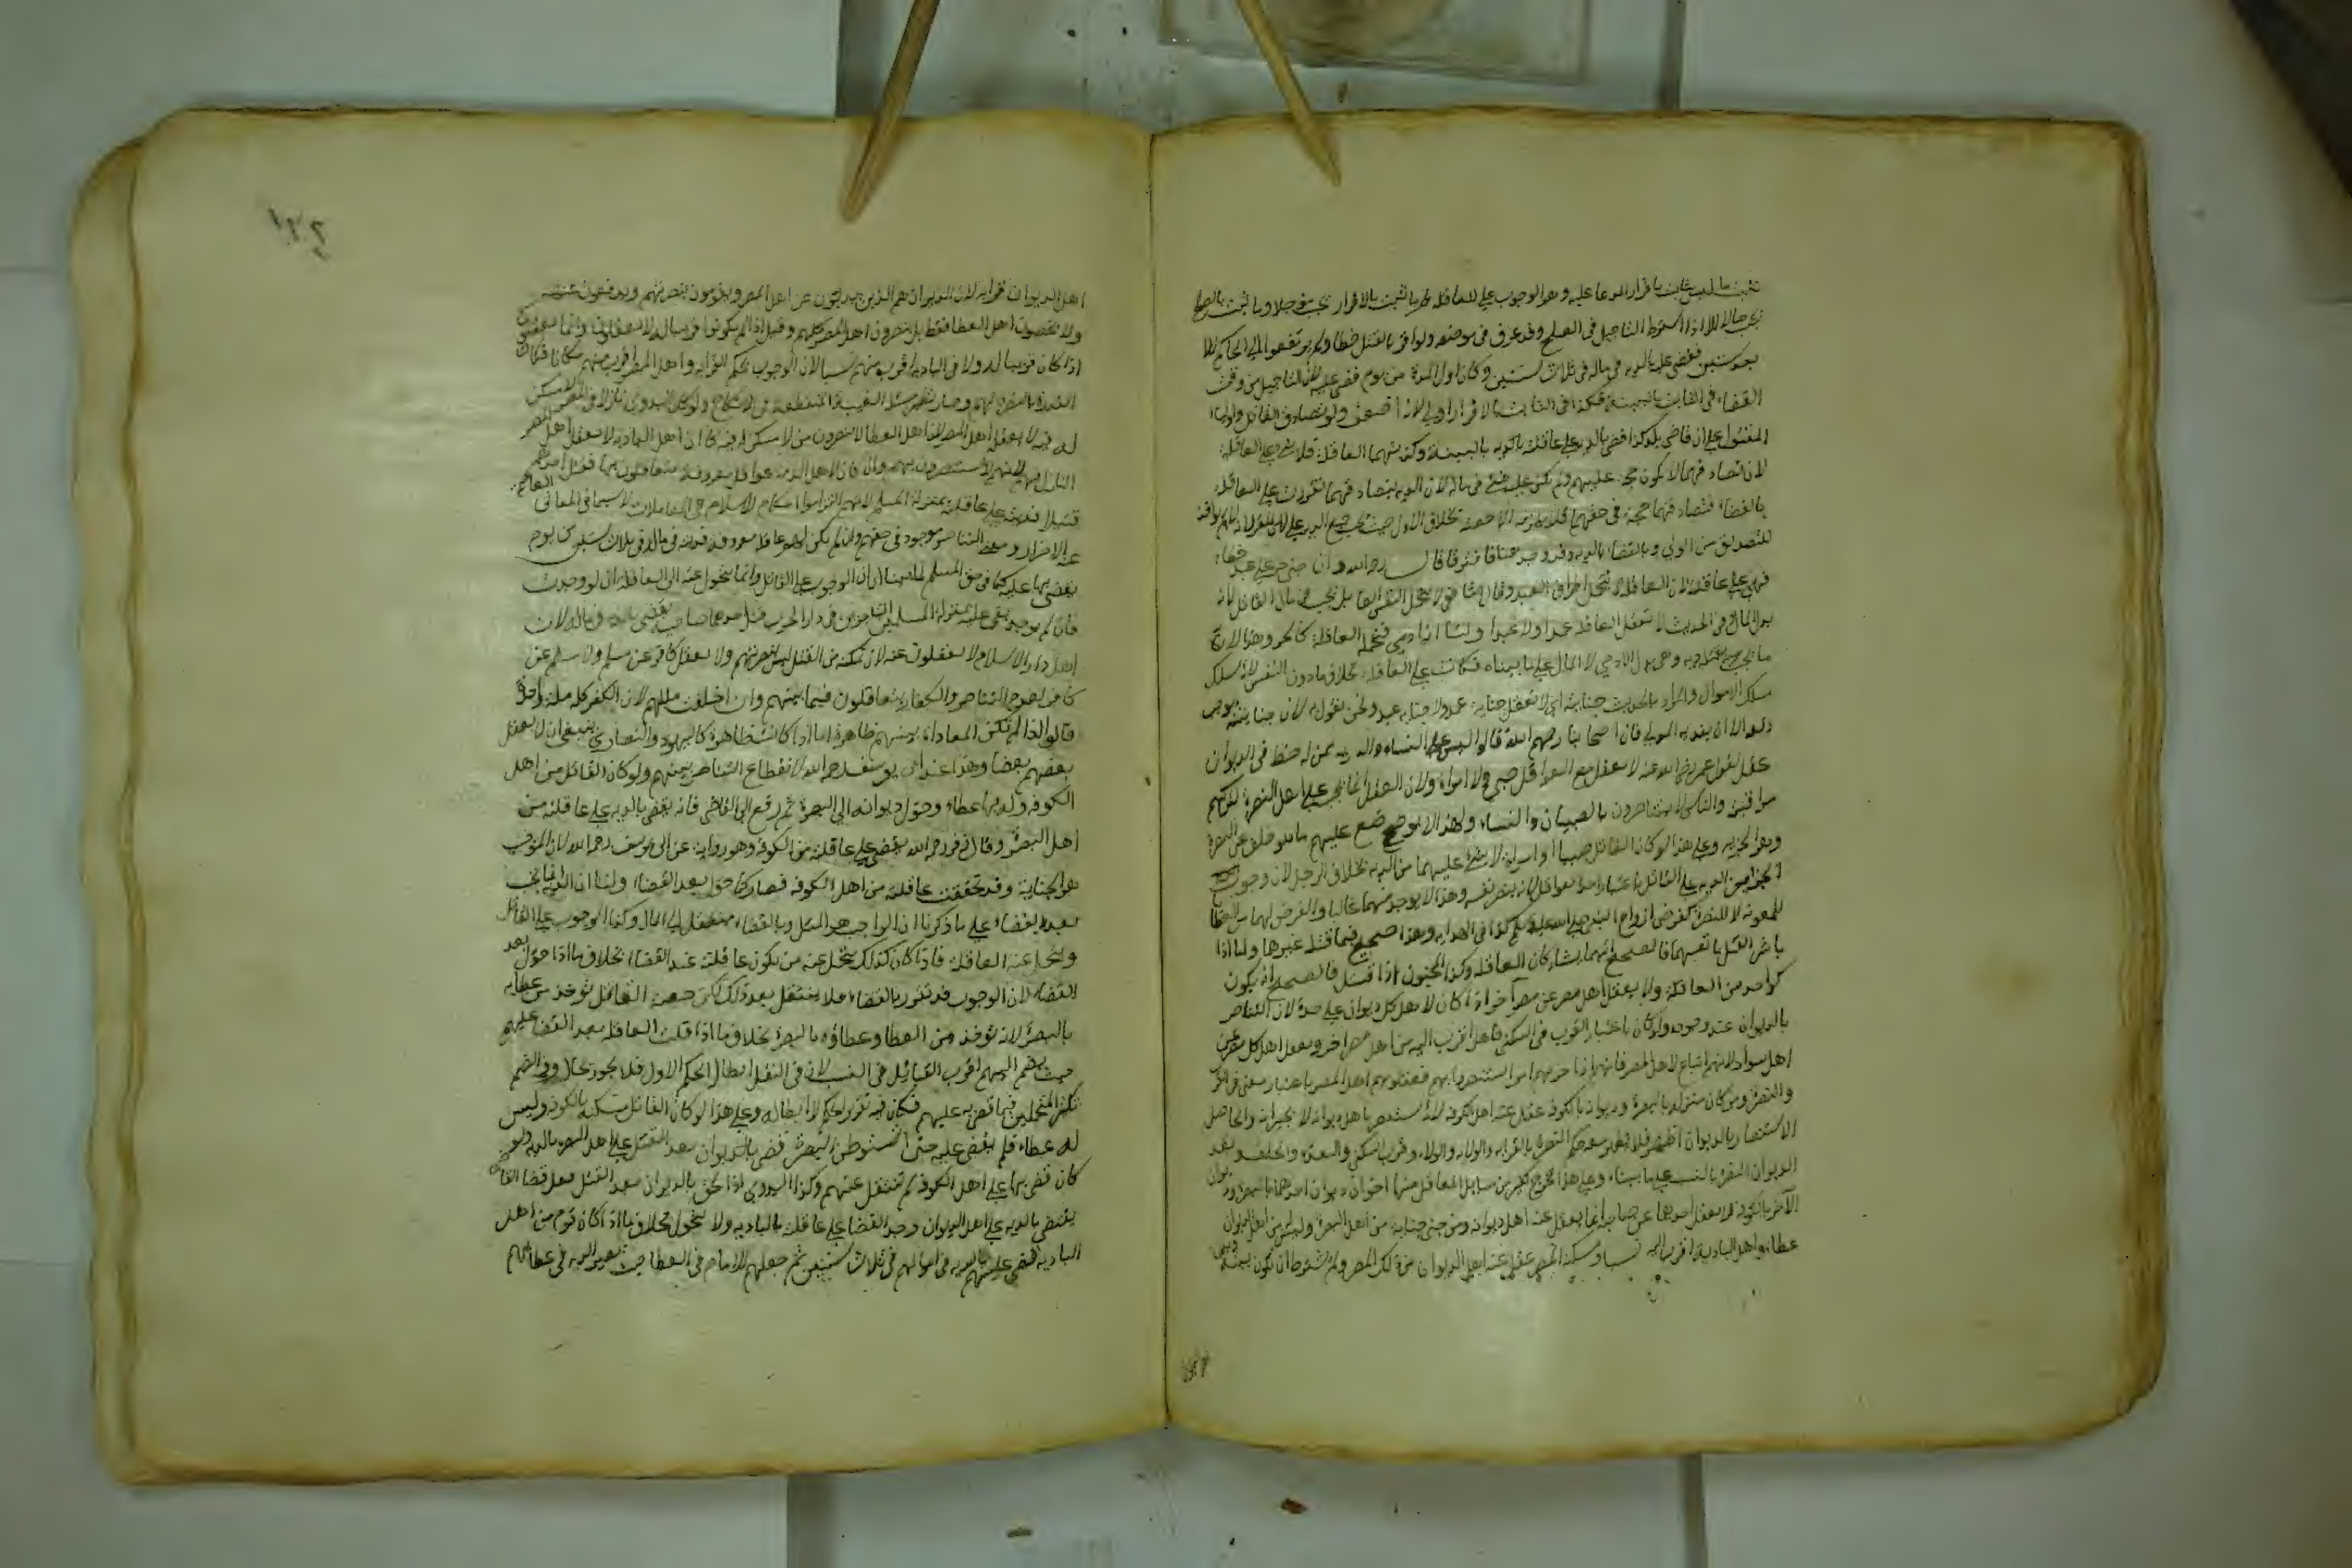 يثبت ما ليس بثابت باقرار المدعا عليه وهو الوجوب على العاقلة وما ثبت بالاقرار يجب مؤجلا وما ثبت بالصلح
يجب حالا الا اذا اشترط التاجيل في الصلح وقد عرف في موضعه ولو اقر بالقتل خطا ولم يرتفعوا الى الحاكم الا
بعد سنين فقضى عليه بالدية في ماله في ثلاث سنين وكان اول المدة من يوم قضى عليه لان التاجيل من وقت
القضاء في الثابت بالبينة فكذا في الثابت بالاقرار اولى لانه اضعف ولو تصادق القاتل واولياء
المقتول على ان قاضي بلد كذا قضى بالدية على عاقلته بالكوفة بالبينة وكذبتهما العاقلة فلا شي على العاقلة
لان تصادقهما لا يكون حجة عليهم ولم يكن عليه شي في ماله لان الدية بتصادقهما تقررت على العاقلة
بالقضاء فتصادقهما حجة في حقهما فلا يلزمه الا حصته بخلاف الاول حيث تجب جميع الدية على
للتصديق من الولي وبالقضاء بالدية وقد وجد هنا فافترقا قال رحمه الله وان جنى حر على عبد خطاء
فهي على عاقلته لان العاقلة لا تتحمل اطراف العبد وقال الشافعي لا تتحمل النفس ايضا بل تجب في مال القاتل لانه
بدل المال وفي الحديث لا تعقل العاقلة عمدا ولا عبدا ولنا انه آدمي فتتحمله العاقلة كالحر وهذا لان
ما يجب بقتله دية وهي بدل الآدمي لا المال على ما بيناه فكانت على العاقلة بخلاف ما دون النفس لانه يسلك
مسلك الاموال والمراد بالحديث جنايته اي لا تعقل جناية عمد ولا جناية عبد ونحن نقول به لان جنايته توجب
دفعه الا ان يفديه المولى قال اصحابنا رحمهم الله قالوا ليس على النساء والذرية ممن له حظ في الديوان
عقل لقول عمر رضي الله عنه لا يعقل مع العواقل صبي ولا امراة ولان العقل انما يجب على اهل النصرة لتركهم
مراقبته والناس لا يتناصرون بالصبيان والنساء ولهذا لا يوضع عليهم ما هو خلف عن النصرة
وهو الجزية وعلى هذا لو كان القاتل صبيا او امراة لا شي عليهما من الدية بخلاف الرجل لان وجوب
الجزء من الدية على القاتل باعتبار انه احد العواقل لانه ينصر نفسه وهذا لا يوجد فيهما غالبا والفرض لهما من العطاء
للمعونة لا للنصرة كفرض ازواج النبي صلى الله عليه وسلم كذا في الهداية وهذا صحيح فيما قتله غيرها واما اذا
باشر القتل بانفسهما فالصحيح انهما يشاركان العاقلة وكذا المجنون اذا قتل فالصحيح انه يكون
كواحد من العاقلة ولا يعقل اهل مصر عن مصر آخر اذا كان لاهل كل ديوان على حدة لان التناصر
بالديوان عند وجوده ولو كان باعتبار القرب في السكنى فاهل اقرب اليه من اهل مصر اخر ويعقل اهل كل مصر عن
اهل سوادهم لانهم اتباع لاهل المصر فانهم اذا حزبهم امر استنصروا بهم فيعقلونهم اهل المصر باعتبار معنى القرب
والنصرة ومن كان منزله بالبصرة وديوانه بالكوفة عقل عنه اهل الكوفة لانه يستنصر باهل ديوانه لا بجيرانه والحاصل
الاستنصار بالديوان اظهر فلا يظهر معه حكم النصرة بالقرابة والولاية والولاء وقرب السكنى والعدة والحلف وبعد
الديوان النصرة بالنسب على ما بيناه وعلى هذا يخرج كثير من مسائل المعاقل منها اخوان ديوان احدهما بالبصرة وديوان
الآخر بالكوفة لا يعقل احدهما عن صاحبه وانما يعقل عنه اهل ديوانه ومن جنى جناية من اهل البصرة وليس من اهل ديوان
عطاء واهل البادية اقرب اليه نسبا ومسكنه المصر عقل عنه اهل الديوان من ذلك المصر ولم يشترط ان يكون بينه وبين
١٣٢
اهل الديوان قرابة لان الديوان هم الذين يذبون عن اهل المصر ويقومون بنصرتهم ويدفعون عنهم
ولا يخصون اهل العطا فقط بل ينصرون اهل المصر كلهم وقيل اذا لم يكونوا قريبا له لا يعقلونه وانما يعقلون
اذا كان قريبا له ولا في البادية اقرب منهم نسبا لان الوجوب بحكم القرابة واهل المصر اقرب منهم مكانا فكانت
القدرة بالنصرة لهم وصار نظير مسئلة الغيبة المنقطعة في الانكاح ولو كان البدوي نازلا في المصر لا مسكن
له فيه لا يعقله اهل المصر لان اهل العطا لا ينصرون من لا مسكن له فيه كما ان اهل البادية لا يعقل اهل المصر
النازل فيهم لانه لا يستنصر بهم وان كان لاهل الذمة عواقل معروفة يتعاقلون بها فقتل احدهم
قتيلا فديته على عاقلته بمنزلة المسلم لانهم التزموا احكام الاسلام في المعاملات لا سيما في المعاني العاصمة
عن الاضرار ومعنى التناصر موجود في حقهم وان لم يكن لهم عاقلة معروفة فديته في ماله في ثلاث سنين من يوم
يقضى بها عليه كما في حق المسلم لما بينا ان الوجوب على القاتل وانما يتحول عنه الى العاقلة ان لو وجدت
فاذا لم يوجد بقي عليه بمنزلة المسلمين التاجرين في دار الحرب قتل احدهما صاحبه يقضى بالدية في ماله لان
اهل دار الاسلام لا يعقلون عنه لان تمكنه من القتل ليس بنصرتهم ولا يعقل كافر عن مسلم ولا مسلم عن
كافر لعدم التناصر والكفار يتعاقلون فيما بينهم وان اختلفت مللهم لان الكفر كله ملة واحدة
قالوا اذا لم تكن المعاداة بينهم ظاهرة اما اذا كانت ظاهرة كاليهود والنصارى ينبغي ان لا يعقل
بعضهم بعضا وهذا عند ابي يوسف رحمه الله لانقطاع التناصر بينهم ولو كان القاتل من اهل
الكوفة وله بها عطاء وحول ديوانه الى البصرة ثم رفع الى القاضي فانه يقضى بالدية على عاقلته من
اهل البصرة وقال زفر رحمه الله يقضى على عاقلته من الكوفة وهو رواية عن ابي يوسف رحمه الله لان الموجب
هو الجناية وقد تحققت عاقلته من اهل الكوفة فصار كما حول بعد القضاء ولنا ان الدية انما تجب
بعد القضاء على ما ذكرنا ان الواجب هو المثل وبالقضاء ينتقل الى المال وكذا الوجوب على القاتل
وتتحمل عنه العاقلة فاذا كان كذلك يتحمل عنه من يكون عاقلته عند القضاء بخلاف ما اذا حول بعد
القضاء لان الوجوب قد تقرر بالقضاء فلا ينتقل بعد ذلك لكن حصة القاتل تؤخذ من عطايه
بالبصرة لانه تؤخذ من العطا وعطاؤه بالبصرة بخلاف ما اذا قلت العاقلة بعد القضا عليهم
حيث يضم اليهم اقرب القبائل في النسب لان في النقل ابطال الحكم الاول فلا يجوز بحال وفي الضم
تكثير المتحملين فيما قضى به عليهم فكان فيه تقرير الحكم لا ابطاله وعلى هذا لو كان القاتل مسكنه بالكوفة وليس
له عطاء فلم يقض عليه حتى استوطن البصرة قضي بالديوان بعد القتل على اهل البصرة بالدية ولو
كان قضى بها على اهل الكوفة لم تنتقل عنهم وكذا البدوي اذا لحق بالديوان بعد القتل قبل قضا القاضي
يقضى بالدية على اهل الديوان وبعد القضا على عاقلته بالبادية ولا يتحول بخلاف ما اذا كان قوم من اهل
البادية فقضي عليهم بالدية في اموالهم في ثلاث سنين ثم جعلهم الامام في العطا حيث تصير الدية في عطائهم